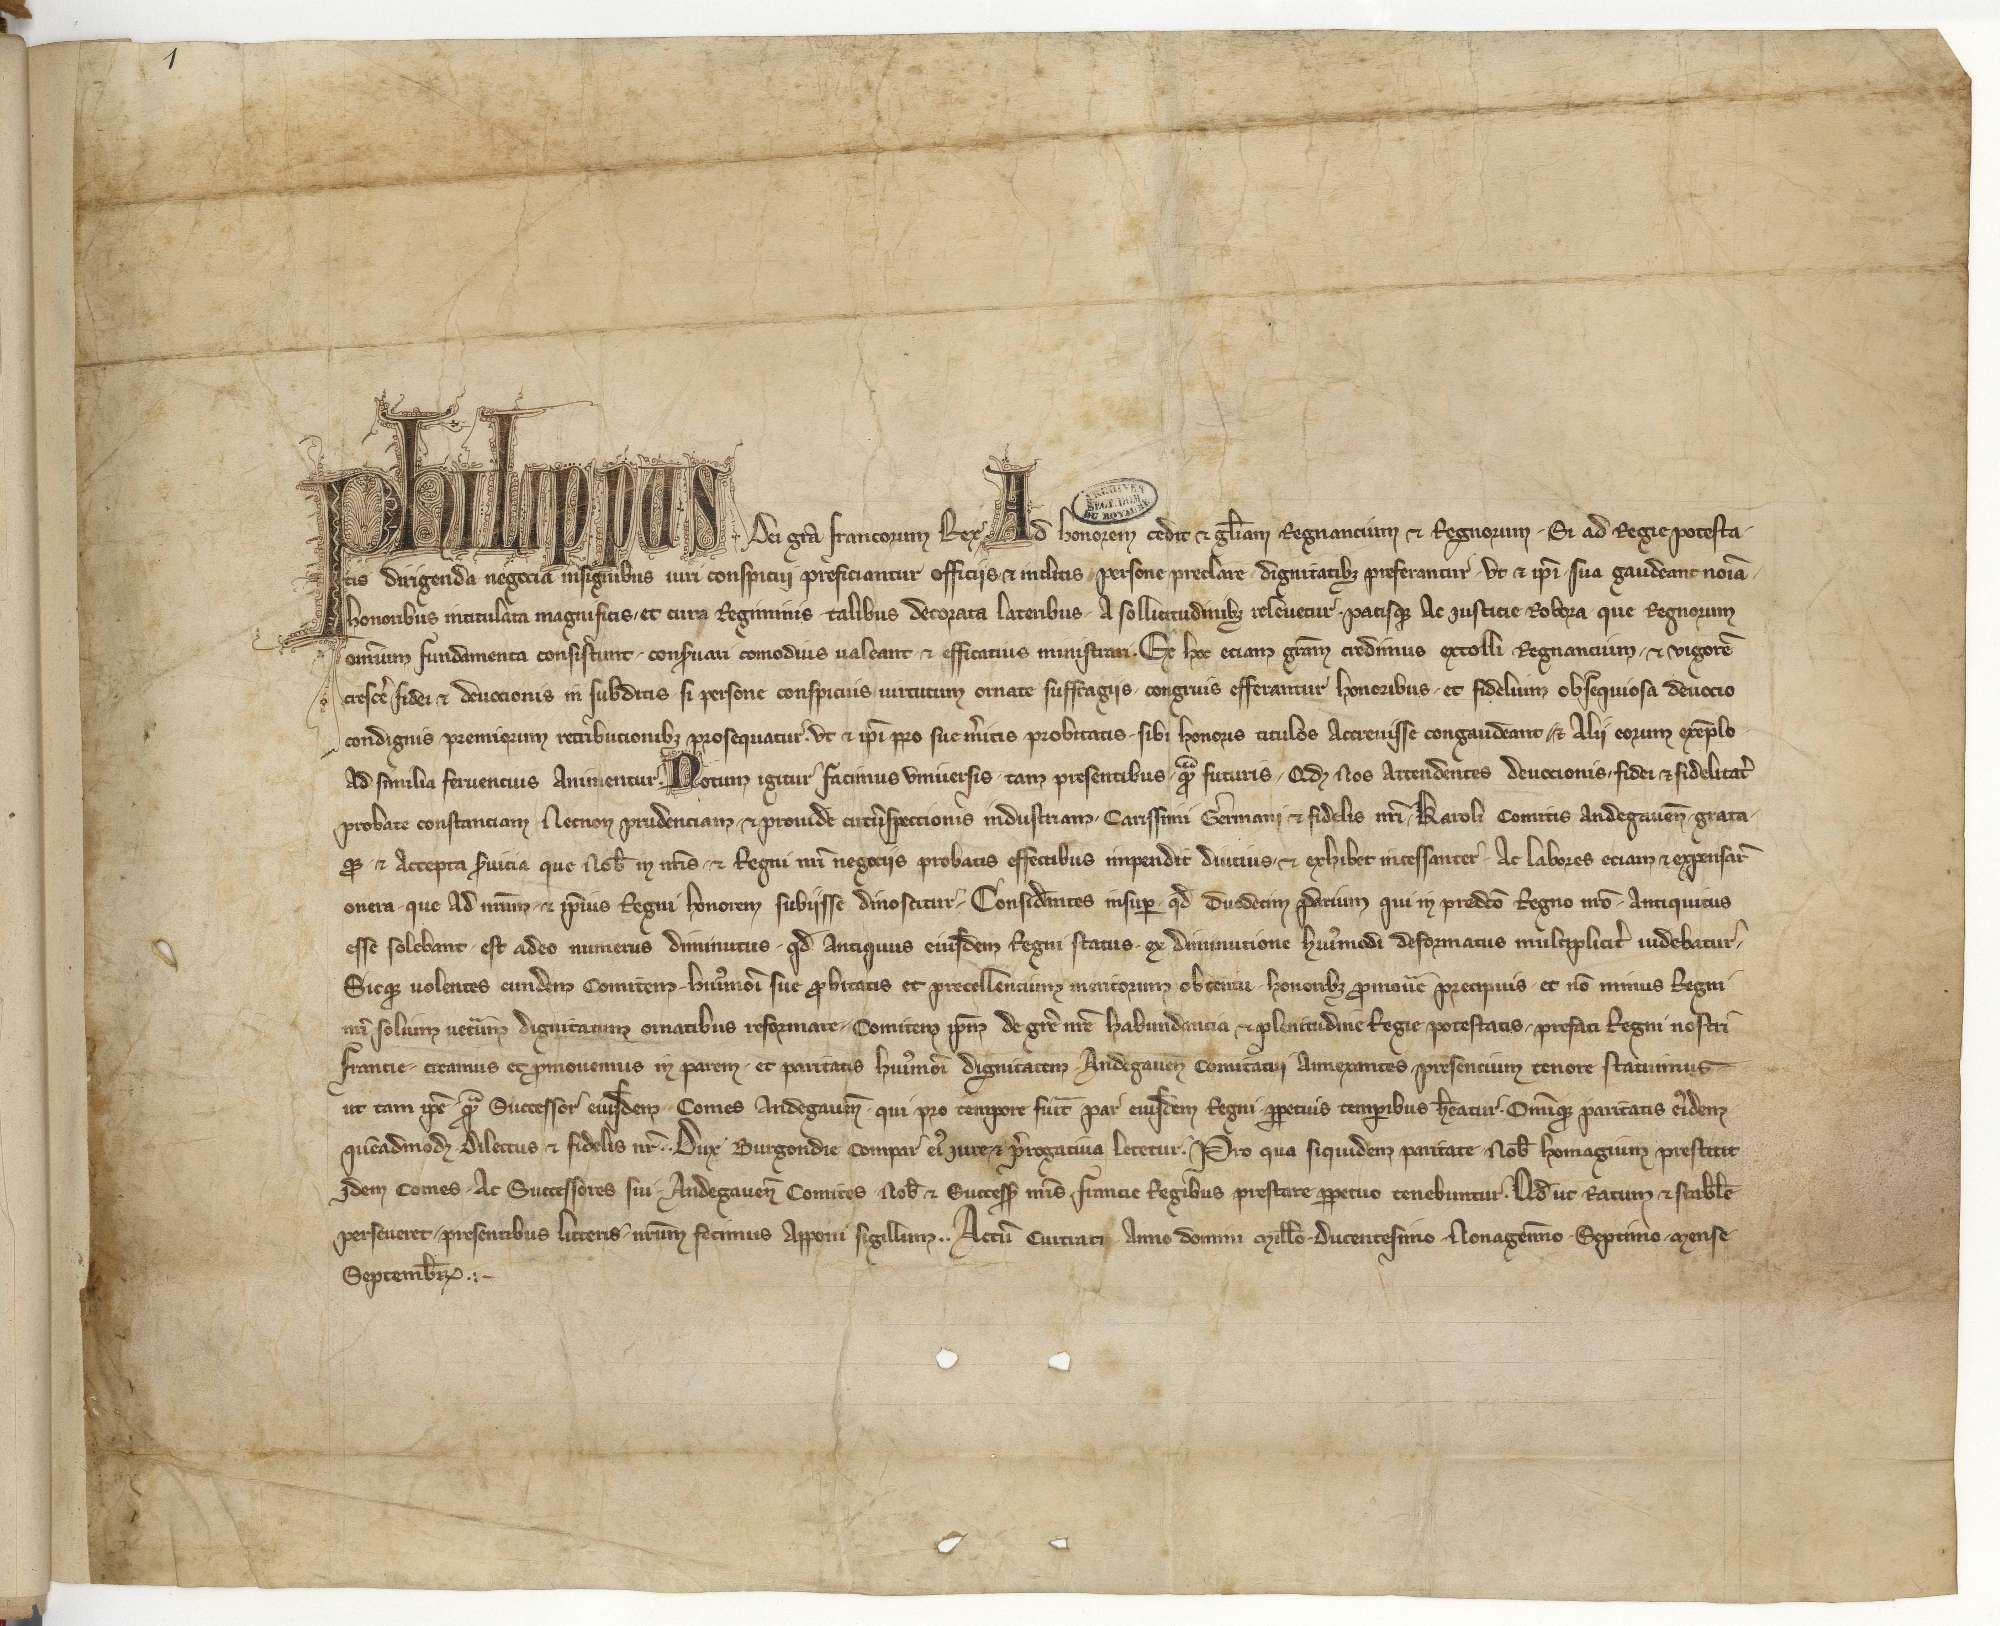 1
Philippus Dei grã francorum Rex. Ad honorem cedit & gl̃iam Regnancium & Regnorum. Si ad Regie potesta
ARCHIVES
SECT. HIST.
DU ROYAUME
tis dirigenda negocia insignibus uiri conspicui preficiantur officiis & inclitis persone preclare dignitatibꝫ preferantur. Vt & ip̃i sua gaudeant noĩa
honoribus intitulata magnificis. et cura Regiminis talibus decorata lateribus. A sollicitudinibꝫ releuetur. pacisqꝫ Ac Justicie Robora que Regnorum
om̃ium fundamenta consistunt. conseruari comodius ualeant & efficacius ministrari. Ex hoc eciam gr̃am credimus extolli Regnancium. & vigorẽ
crescer̃ fidei & deuocionis in subditis si persone conspicuis uirtutum ornate suffragiis. congruis efferantur honoribus. et fidelium obsequiosa deuocio
condignis premiorum retribucionibꝫ prosequatur. Vt & ip̃i pro sue m̃itis probitatis. sibi honoris titulos Accreuisse congaudeant. & Alii eorum exẽplo
Ad similia feruencius Animentur. Notum igitur facimus Vniuersis tam presentibus. qᵃm futuris. Qđ Nos Attendentes deuocionis. fidei & fidelitat̃
probate constanciam Necnon prudenciam & prouide circũspectionis industriam. Carissimi Germani & fidelis nr̃i. Karoli Comitis Andegaueñ. grata
qꝫ & Accepta seruicia que Nob̃ in nr̃is & Regni nr̃i negociis probatis effectibus impendit diucius. & exhibet incessanter. Ac labores eciam & expensar̃
onera. que Ad nr̃um & ip̃ius Regni honorem subiisse dinoscitur. Considerantes insup̱ qđ duodecim Parium qui in predc̃o Regno nr̃o Antiquitus
esse solebant. est adeo numerus diminutus. qđ Antiquus eiusdem Regni status. ex diminutione hui᷒modi deformatus multipliciter uidebatur.
Sicqꝫ uolentes eundem Comitem. hui᷒moi sue ꝓbitatis et precellencium meritorum obtentu. honoribꝫ ꝓmouer̃ precipuis. et nõ minus Regni
nr̃i solium ueterum dignitatum ornatibus reformare. Comitem ip̃m de gr̃e nr̃e habundancia & plenitudine Regie potestatis. prefati Regni nostri
francie. creamus et ꝓmouemus in parem. et paritatis hui᷒moi dignitatem. Andegaueñ Comitatui Annexantes. presencium tenore statuimus
ut tam ip̃e qᵃm Successor eiusdem. Comes Andegaueñ. qui pro tempore fuit̃ Par eiusdem Regni ꝑpetuis temporibus h̃eatur. Om̃iqꝫ paritatis eiusdem
quẽadmodꝫ dilectus & fidelis nr̃. Dux Burgondie Compar ei᷒ Jure & prerogatiua letetur. Pro qua siquidem paritate. Nob̃ homagium prestitit
Idem Comes. Ac Successores sui. Andegaueñ Comites Nob̃ & Success̃ nr̃is francie Regibus prestare ꝑpetuo tenebuntur. Qđ ut Ratum & stabile
perseueret. presentibus litteris. nr̃um fecimus Apponi sigillum.. Actũ Curtraci Anno domini Mill̃o. Ducentesimo. Nonagesimo. Septimo. Mense
Septembr̃.